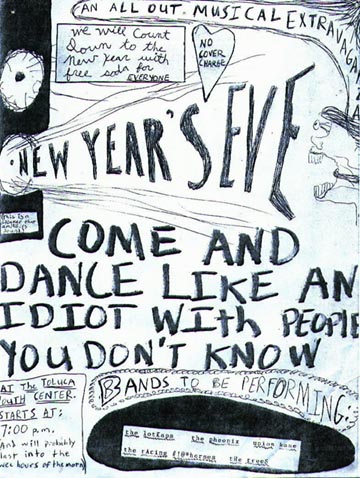 AN ALL OUT MUSICAL EXTRAVAGA
we will Count
Down to the
New Year with
free soda for
EVERYONE
NO
COVER
CHARGE
NEW YEAR'S EVE
COME AND
DANCE LIKE AN
IDIOT With PEOPLE
YOU DON'T KNOW
AT The TOLUCA
YOUTH CENTER.
STARTS AT:
7:00 p.m.
And will probably
last into the
wee hours of the morn
BANDS TO BE PERFORMING:
the phoenix
the racing
the trees